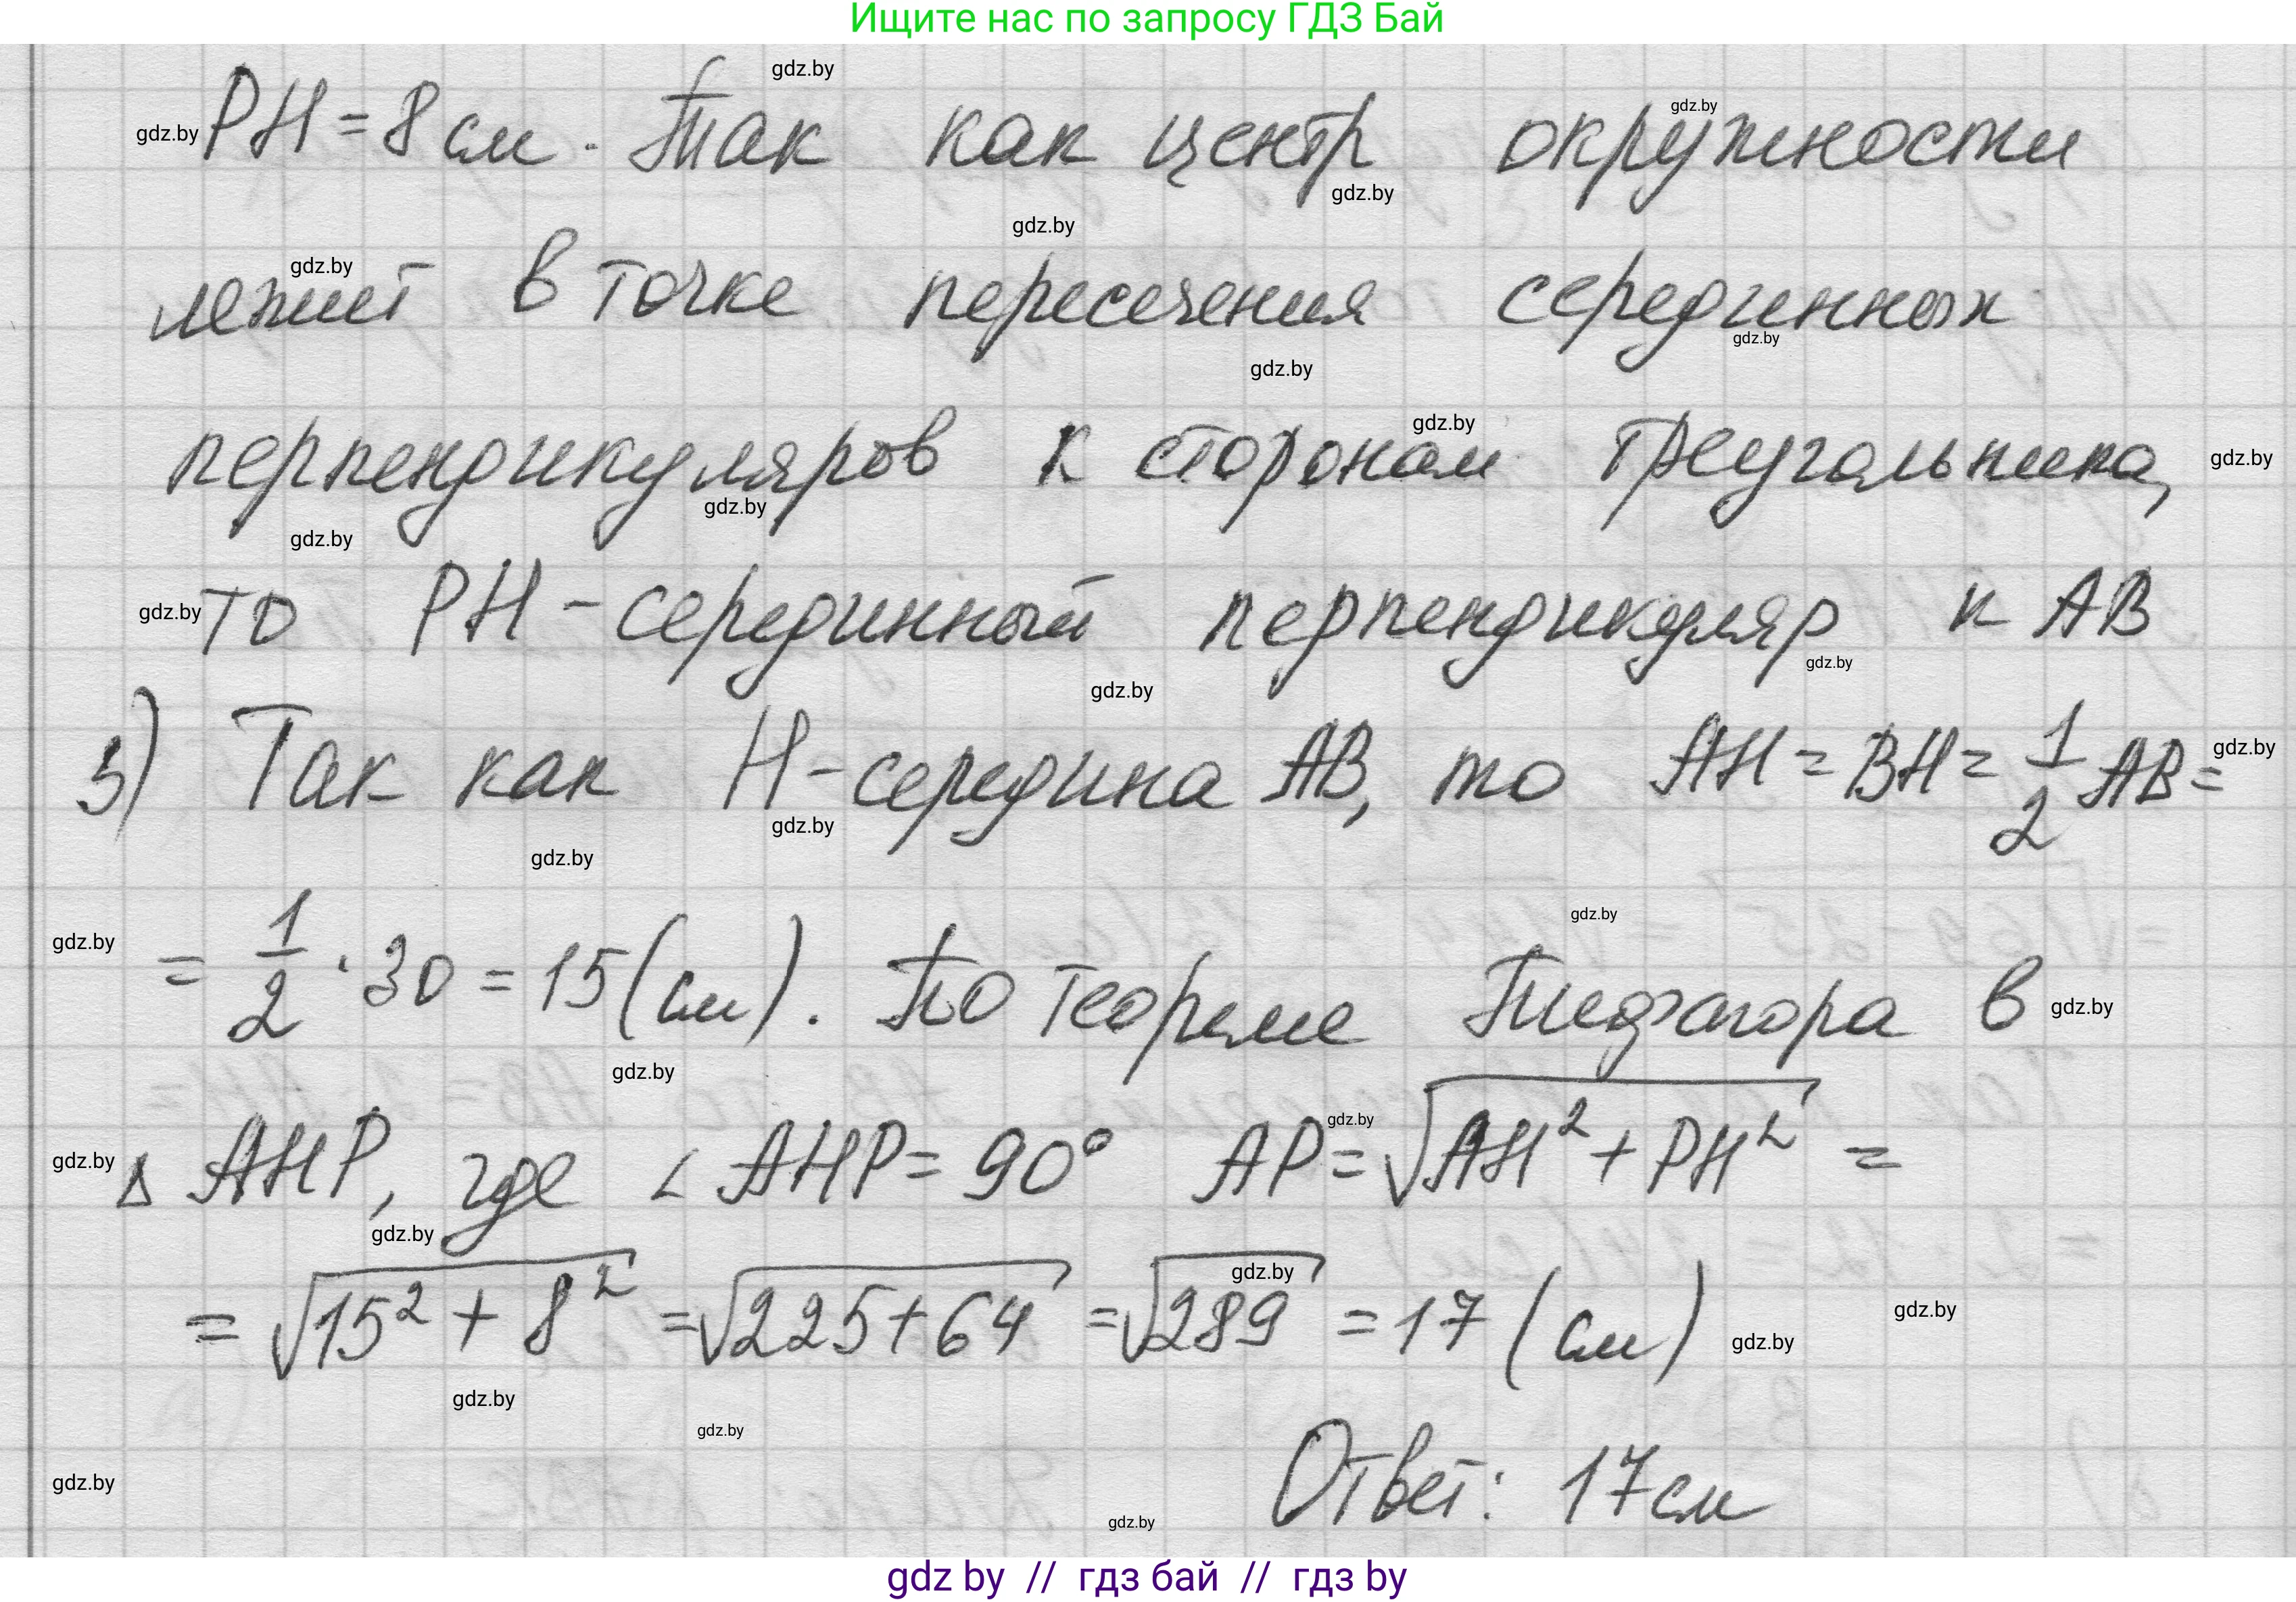 Ищите нас по запросу ГДЗ Бай
gdz.by
gdz.by
gdz.by PH = 8 см. Так как центр окружности
gdz.by
gdz.by
gdz.by
лежит в точке пересечения серединных
gdz.by
gdz.by
gdz.by
перпендикуляров к сторонам треугольника, gdz.by
gdz.by
gdz.by
gdz.by то PH - серединный перпендикуляр к AB
gdz.by
gdz.by
3) Так как H - середина AB, то AH = BH = 1/2 AB = gdz.by
gdz.by
gdz.by
gdz.by
gdz.by = 1/2 · 30 = 15 (см). По теореме Пифагора в gdz.by
gdz.by
gdz.by
gdz.by Δ AHP, где ∠ AHP = 90° AP = √AH² + PH² =
gdz.by
gdz.by
= √15² + 8² = √225 + 64 = √289 = 17 (см) gdz.by gdz.by
gdz.by
gdz.by
gdz.by
Ответ: 17 см
gdz.by
gdz by // гдз бай // гдз by